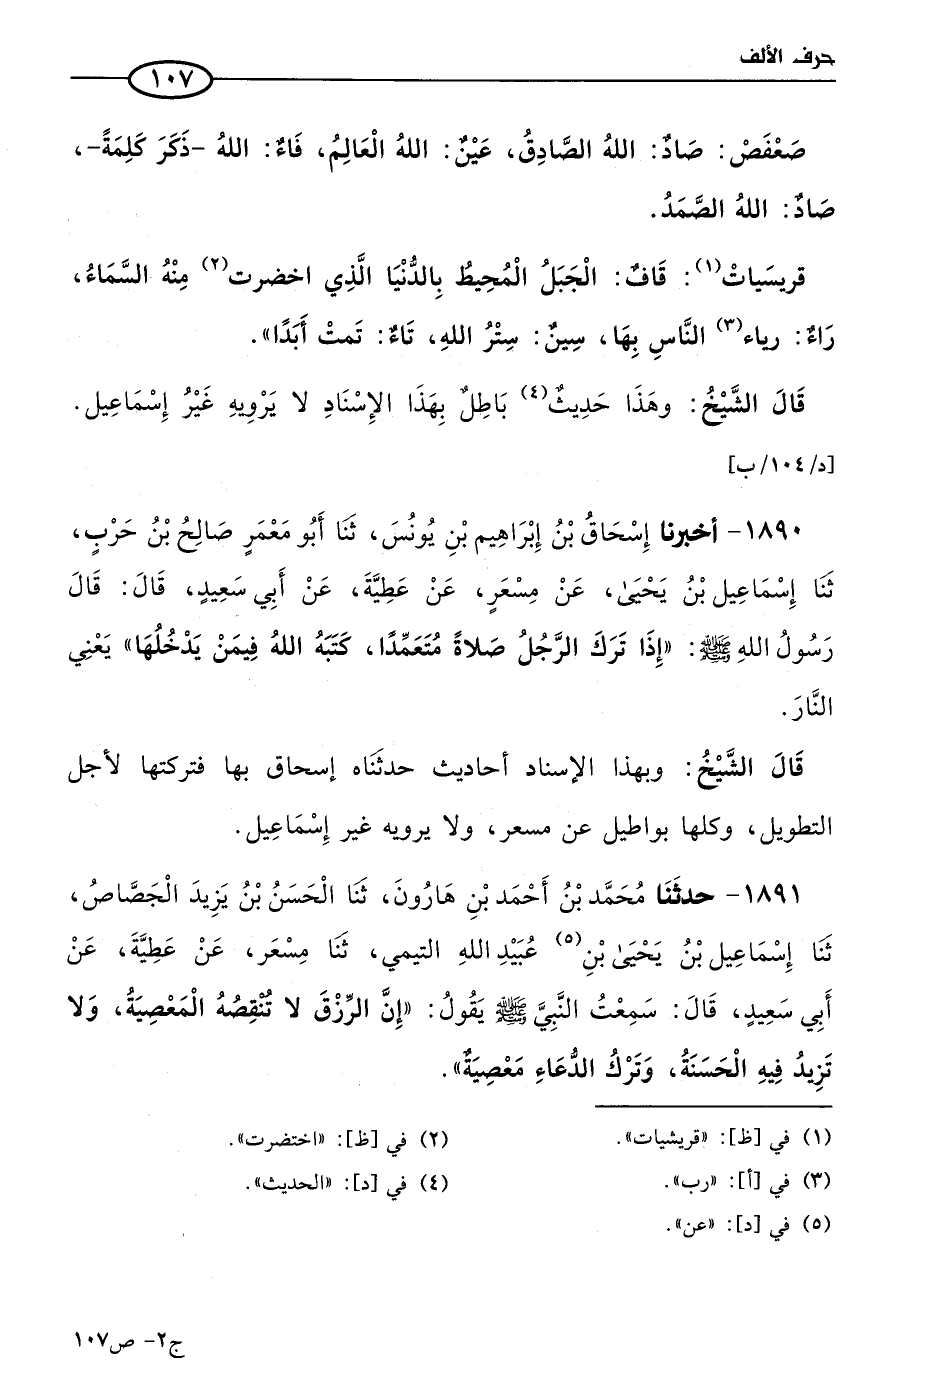 حرف الألف
١٠٧
صَعْفَصْ: صَادٌ: اللهُ الصَّادِقُ، عَيْنٌ: اللهُ الْعَالِمُ، فَاءٌ: اللهُ -ذَكَرَ كَلِمَةً-،
صَادٌ: اللهُ الصَّمَدُ.
قريسَياتْ(١): قَافٌ: الْجَبَلُ الْمُحِيطُ بِالدُّنْيَا الَّذِي اخضرت(٢) مِنْهُ السَّمَاءُ،
رَاءٌ: رياء(٣) النَّاسِ بِهَا، سِينٌ: سِتْرُ اللهِ، تَاءٌ: تَمتْ أَبَدًا».
قَالَ الشَّيْخُ: وهَذَا حَدِيثٌ(٤) بَاطِلٌ بِهَذَا الإِسْنَادِ لا يَرْوِيهِ غَيْرُ إِسْمَاعِيل.
[د/١٠٤/ب]
١٨٩٠- أخبرنا إِسْحَاقُ بْنُ إِبْرَاهِيم بْنِ يُونُسَ، ثَنَا أَبُو مَعْمَرٍ صَالِحُ بْنُ حَرْبٍ،
ثَنَا إِسْمَاعِيل بْنُ يَحْيَىٰ، عَنْ مِسْعَرٍ، عَنْ عَطِيَّةَ، عَنْ أَبِي سَعِيدٍ، قَالَ: قَالَ
رَسُولُ اللهِ ﷺ: «إِذَا تَرَكَ الرَّجُلُ صَلاةً مُتَعَمِّدًا، كَتَبَهُ اللهُ فِيمَنْ يَدْخُلُهَا» يَعْنِي
النَّارَ.
قَالَ الشَّيْخُ: وبهذا الإسناد أحاديث حدثنَاه إسحاق بها فتركتها لأجل
التطويل، وكلها بواطيل عن مسعر، ولا يرويه غير إِسْمَاعِيل.
١٨٩١- حدثنَا مُحَمَّد بْنُ أَحْمَد بْنِ هَارُونَ، ثَنَا الْحَسَنُ بْنُ يَزِيدَ الْجَصَّاصُ،
ثَنَا إِسْمَاعِيل بْنُ يَحْيَىٰ بْنِ(٥) عُبَيْدِ اللهِ التيمي، ثَنَا مِسْعَر، عَنْ عَطِيَّةَ، عَنْ
أَبِي سَعِيدٍ، قَالَ: سَمِعْتُ النَّبِيَّ ﷺ يَقُولُ: «إِنَّ الرِّزْقَ لا تُنْقِصُهُ الْمَعْصِيَةُ، وَلا
تَزِيدُ فِيهِ الْحَسَنَةُ، وَتَرْكُ الدُّعَاءِ مَعْصِيَةٌ».
(١) في [ظ]: «قريشيات». (٢) في [ظ]: «اختضرت».
(٣) في [أ]: «رب». (٤) في [د]: «الحديث».
(٥) في [د]: «عن».
ج٢- ص١٠٧